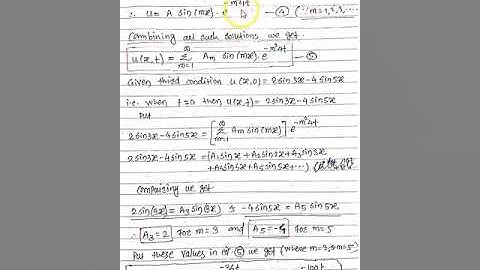 ∴ u = A sin(mx) · e^{-m²4t} —④ (∵ m=1,2,3,···
Combining all such solutions we get
u(x,t) = ∞Σm=1 Am sin(mx) · e^{-m²4t} —⑤
Given third condition u(x,0) = 2sin3x-4sin5x
i.e. when t=0 then u(x,t) = 2sin3x-4sin5x
put
2sin3x-4sin5x = [∞Σm=1 Am sin(mx)] e^{-m²4t}
2sin3x-4sin5x = (A₁sinx + A₂sin2x + A₃sin3x
+A₄sin4x + A₅sin5x + ···)
Comparing we get
2sin(3x) = A₃sin(3x) & -4sin5x = A₅sin5x
∴ A₃=2 for m=3 and A₅=-4 for m=5
Put these values in eqⁿ ⑤ we get (where m=3,&m=5)
-36t -100t